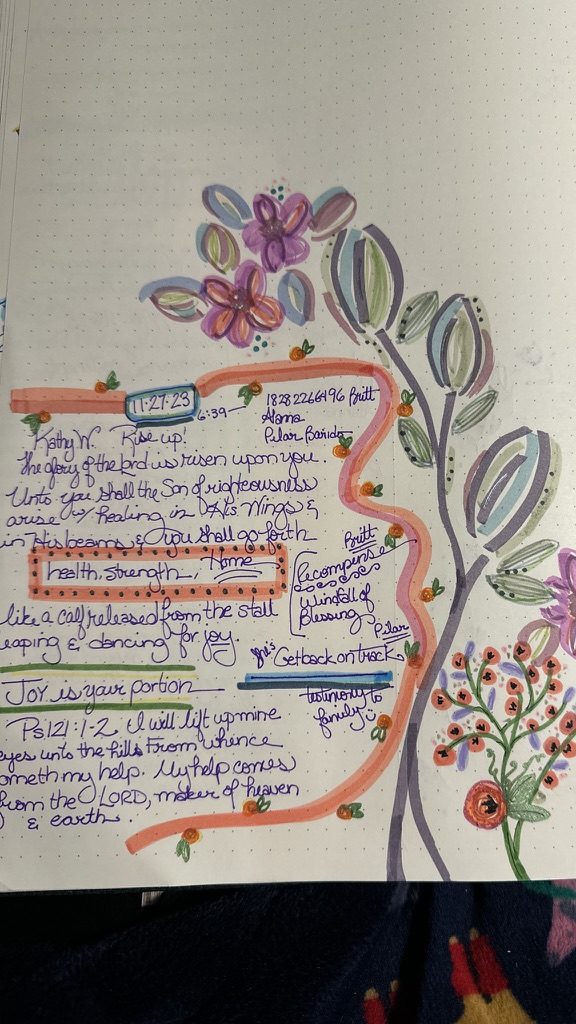 11.27.23
6:39
18282266496 Britt
Alana
Pilar
Kathy W. Rise up!
The glory of the Lord is risen upon you.
Unto you shall the Son of righteousness
arise w/ healing in His Wings &
in His beams, & you shall go forth
health, strength, Home
like a calf released from the stall
eaping & dancing for joy.
Britt
Recompense
windfall of
Blessing
Pilar
Get back on track
testimony to
family
Joy is your portion
Ps 121:1-2 I will lift up mine
eyes unto the hills From whence
ometh my help. My help comes
from the LORD, maker of heaven
& earth.